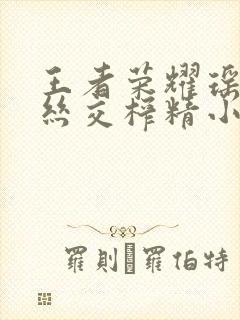 王者荣耀瑶
丝交榨精小
羅則羅伯特